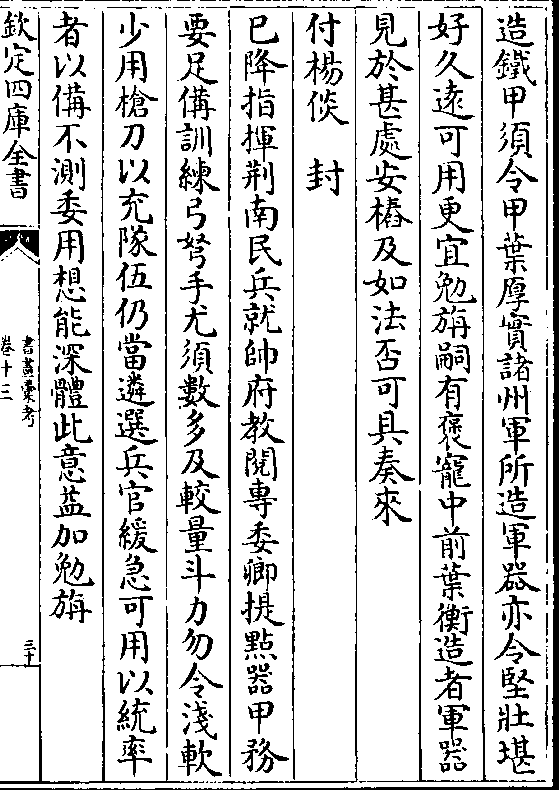 造鐵甲須令甲葉厚實諸州軍所造軍器亦令堅壯堪
好久遠可用更宜勉旃嗣有褒寵中前葉衡造者軍器
見於甚處安樁及如法否可具奏來
付楊倓　封
已降指揮荆南民兵就帥府教閲專委卿提點器甲務
要足備訓練弓弩手尤須數多及較量斗力勿令淺軟
少用槍刀以充隊伍仍當遴選兵官緩急可用以統率
者以備不測委用想能深體此意益加勉旃
欽定四庫全書
書畫彚考
卷十三
三十